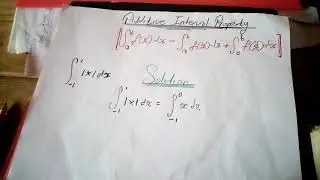 Additive Interval Property
∫₀ᵇ f(x)dx = ∫ₐᶜ f(x)dx + ∫꜀ᵇ f(x)dx
∫₋₁¹ |x| dx
Solution
∫₋₁¹ |x| dx = ∫₋₁⁰ x dx